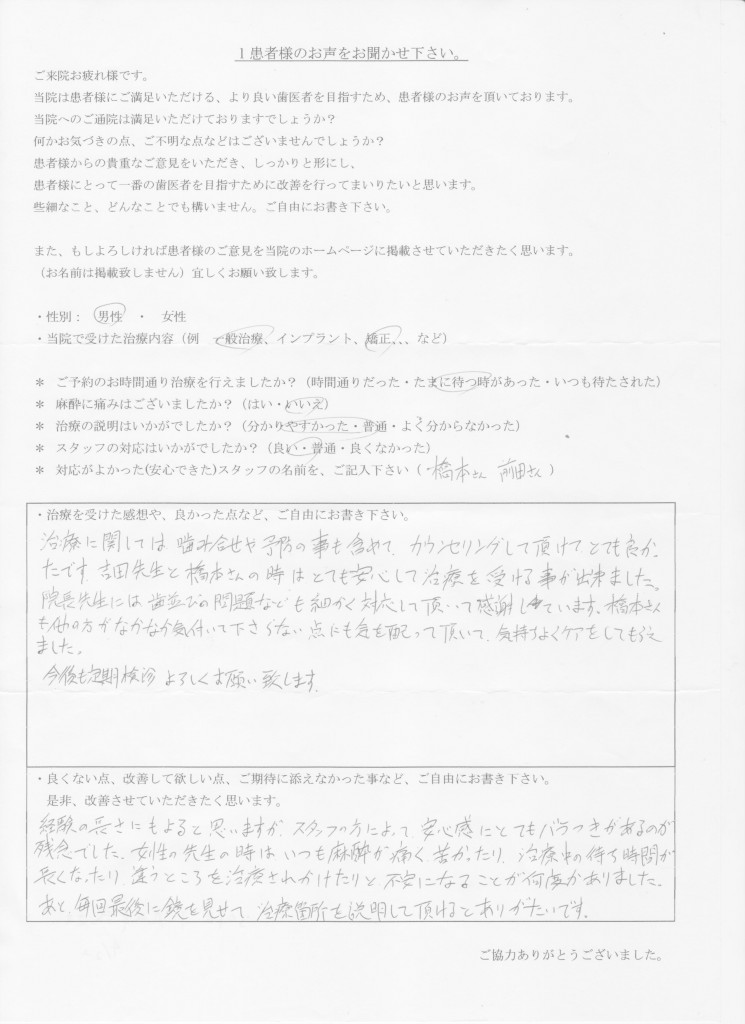 1 患者様のお声をお聞かせ下さい。
ご来院お疲れ様です。
当院は患者様にご満足いただける、より良い歯医者を目指すため、患者様のお声を頂いております。
当院へのご通院は満足いただけておりますでしょうか?
何かお気づきの点、ご不明な点などはございませんでしょうか?
患者様からの貴重なご意見をいただき、しっかりと形にし、
患者様にとって一番の歯医者を目指すために改善を行ってまいりたいと思います。
些細なこと、どんなことでも構いません。ご自由にお書き下さい。
また、もしよろしければ患者様のご意見を当院のホームページに掲載させていただきたく思います。
(お名前は掲載致しません)宜しくお願い致します。
・性別: 男性 ・ 女性
・当院で受けた治療内容(例 一般治療、インプラント、矯正、、、など)
* ご予約のお時間通り治療を行えましたか?(時間通りだった・たまに待つ時があった・いつも待たされた)
* 麻酔に痛みはございましたか?(はい・いいえ)
* 治療の説明はいかがでしたか?(分かりやすかった・普通・よく分からなかった)
* スタッフの対応はいかがでしたか?(良い・普通・良くなかった)
* 対応がよかった(安心できた)スタッフの名前を、ご記入下さい(橋本さん 前田さん)
・治療を受けた感想や、良かった点など、ご自由にお書き下さい。
治療に関しては噛み合せや予防の事も含めて、カウンセリングして頂けて、とても良かっ
たです。吉田先生と橋本さんの時はとても安心して治療を受ける事が出来ました。
院長先生には歯並びの問題なども細かく対応して頂いて感謝しています。橋本さん
も他の方がなかなか気付いて下さらない点にも気を配って頂いて、気持ちよくケアをしてもらえ
ました。
今後も定期検診よろしくお願い致します。
・良くない点、改善して欲しい点、ご期待に添えなかった事など、ご自由にお書き下さい。
是非、改善させていただきたく思います。
経験の長さにもよると思いますが、スタッフの方によって安心感にとてもバラつきがあるのが
残念でした。女性の先生の時はいつも麻酔が痛く、苦かったり、治療中の待ち時間が
長くなったり、違うところを治療されかけたりと不安になることが何度かありました。
あと、毎回最後に鏡を見せて、治療箇所を説明して頂けるとありがたいです。
ご協力ありがとうございました。